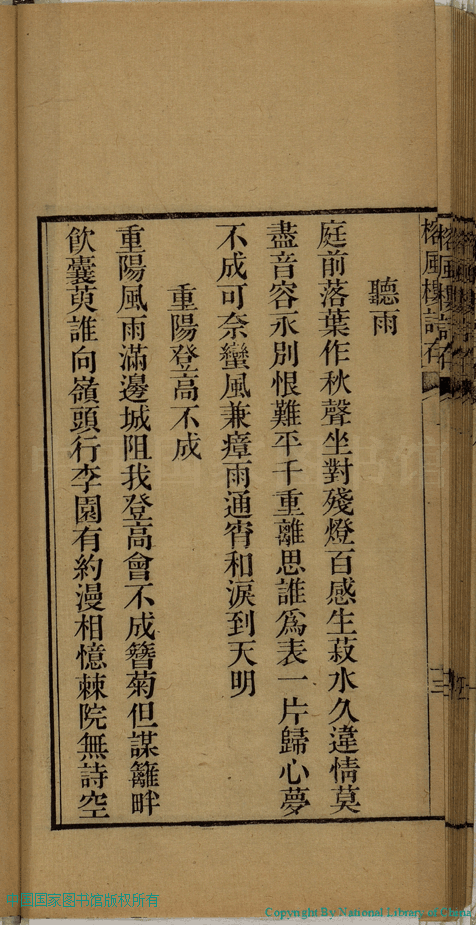 榕風樓詩存
聽雨
庭前落葉作秋聲坐對殘燈百感生菽水久違情莫
盡音容永別恨難平千重離思誰爲表一片歸心夢
不成可奈蠻風兼瘴雨通宵和淚到天明
重陽登高不成
重陽風雨滿邊城阻我登高會不成簪菊但謀籬畔
飲囊萸誰向嶺頭行李園有約漫相憶棘院無詩空
中国国家图书馆版权所有
Copyright By National Library of China